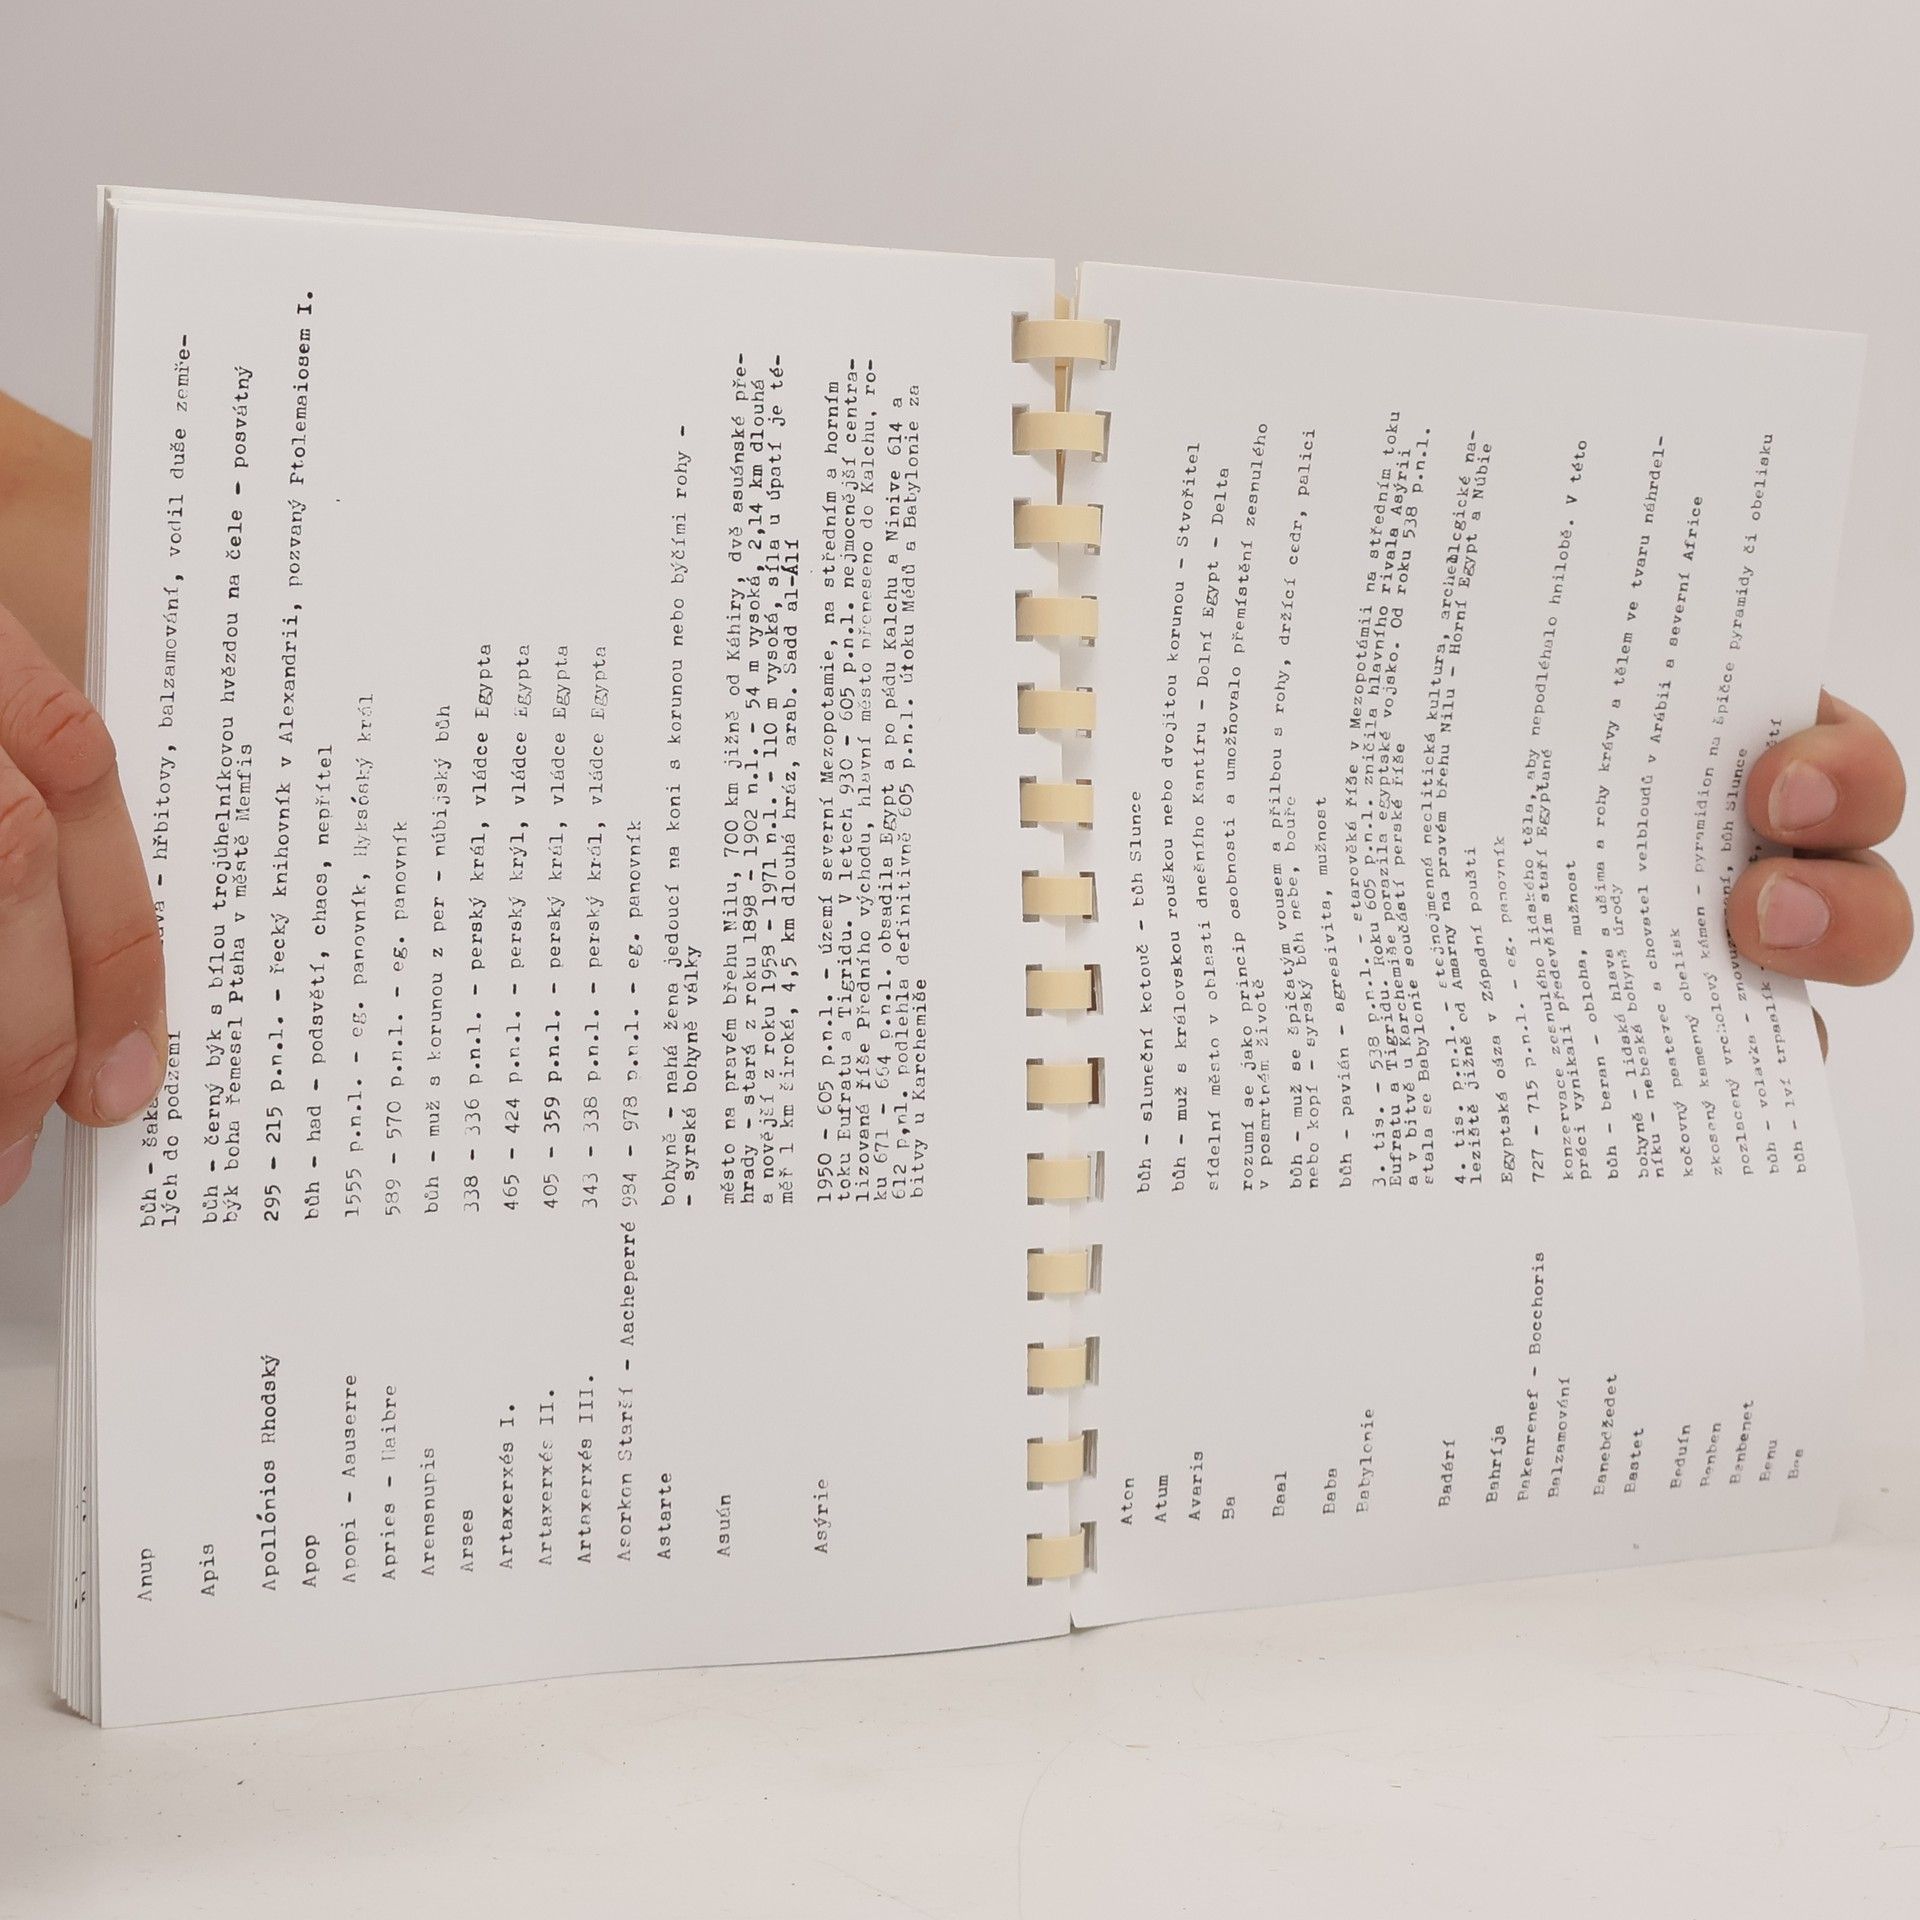 Anup bůh - šaka hlava - hřbitovy, balzamování, vodil duše zemře-
lých do podzemí
Apis bůh - černý býk s bílou trojúhelníkovou hvězdou na čele - posvátný
býk boha řemesel Ptaha v městě Memfis
Apollónios Rhodský 295 - 215 p.n.l. - řecký knihovník v Alexandrii, pozvaný Ptolemaiosem I.
Apop bůh - had - podsvětí, chaos, nepřítel
Apopi - Aauserre 1555 p.n.l. - eg. panovník, Hyksóský král
Apries - Haibre 589 - 570 p.n.l. - eg. panovník
Arensnupis bůh - muž s korunou z per - núbijský bůh
Arses 338 - 336 p.n.l. - perský král, vládce Egypta
Artaxerxés I. 465 - 424 p.n.l. - perský krýl, vládce Egypta
Artaxerxés II. 405 - 359 p.n.l. - perský král, vládce Egypta
Artaxerxés III. 343 - 338 p.n.l. - perský král, vládce Egypta
Asorkon Starší - Aacheperré 984 - 978 p.n.l. - eg. panovník
Astarte bohyně - nahá žena jedoucí na koni s korunou nebo býčími rohy -
- syrská bohyně války
Asuán město na pravém břehu Nilu, 700 km jižně od Káhiry, dvě asuánské pře-
hrady - stará z roku 1898 - 1902 n.l. - 54 m vysoká, 2,14 km dlouhá
a novější z roku 1958 - 1971 n.l. - 110 m vysoká, síla u úpatí je té-
měř 1 km široká, 4,5 km dlouhá hráz, arab. Sadd al-Álí
Asýrie 1950 - 605 p.n.l. - území severní Mezopotamie, na středním a horním
toku Eufratu a Tigridu. V letech 930 - 605 p.n.l. nejmocnější centra-
lizovaná říše Předního východu, hlavní město přeneseno do Kalchu, ro-
ku 671 - 664 p.n.l. obsadila Egypt a po pádu Kalchu a Ninive 614 a
612 p,nl. podlehla definitivně 605 p.n.l. útoku Médů a Babylonie za
bitvy u Karchemiše
Aton bůh - sluneční kotouč - bůh Slunce
Atum bůh - muž s královskou rouškou nebo dvojitou korunou - Stvořitel
Avaris sídelní město v oblasti dnešního Kantíru - Dolní Egypt - Delta
Ba rozumí se jako princip osobnosti a umožňovalo přemístění zesnulého
v posmrtném životě
Baal bůh - muž se špičatým vousem a přilbou s rohy, držící cedr, palici
nebo kopí - syrský bůh nebe, bouře
Baba bůh - pavián - agresivita, mužnost
Babylonie 3. tis. - 538 p.n.l. - starověká říše v Mezopotámii na středním toku
Eufratu a Tigridu. Roku 605 p.n.l. zničila hlavního rivala Asýrii
a v bitvě u Karchemiše porazila egyptské vojsko. Od roku 538 p.n.l.
stala se Babylonie součástí perské říše
Badárí 4. tis. p.n.l. - stejnojmenná neolitická kultura, archeologické na-
leziště jižně od Amarny na pravém břehu Nilu - Horní Egypt a Núbie
Bahríja Egyptská oáza v Západní poušti
Bakenrenef - Bocchoris 727 - 715 p.n.l. - eg. panovník
Balzamování konzervace zesnulého lidského těla, aby nepodléhalo hnilobě. V této
práci vynikali především staří Egypťané
Banebdžedet bůh - beran - obloha, mužnost
Bastet bohyně - lidská hlava s ušima a rohy krávy a tělem ve tvaru náhrdel-
níku - nebeská bohyně úrody
Beduín kočovný pastevec a chovatel velbloudů v Arábii a severní Africe
Benben zkosený kamenný obelisk
Benbenet pozlacený vrcholový kámen - pyramidion na špičce pyramidy či obelisku
Benu bůh - volavka - bůh Slunce
Bes bůh - lví trpaslík